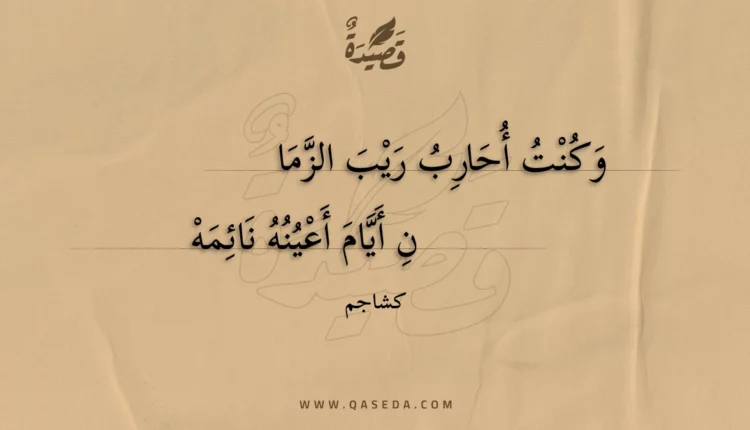 قَصِيدَةٌ
وَكُنْتُ أُحَارِبُ رَيْبَ الزَّمَا
نِ أَيَّامَ أَعْيُنُهُ نَائِمَهْ
كشاجم
WWW.QASEDA.COM